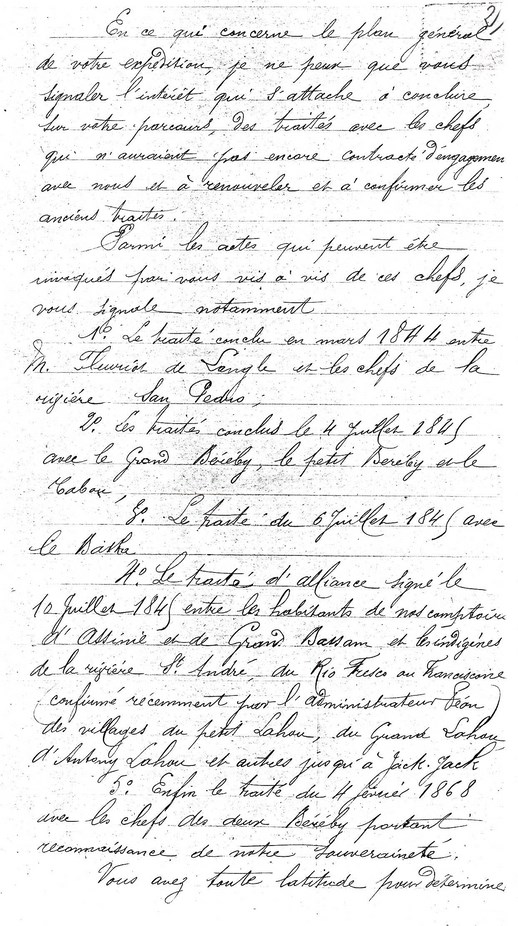 21
En ce qui concerne le plan général
de votre expédition, je ne peux que vous
signaler l'intérêt qui s'attache à conclure,
sur votre parcours, des traités avec les chefs
qui n'auraient pas encore contracté d'engagemen
avec nous et à renouveler et à confirmer les
anciens traités.
Parmi les actes qui peuvent être
invoqués par vous vis à vis de ces chefs, je
vous signale notamment
1º Le traité conclu en mars 1844 entre
M. Fleuriot de Langle et les chefs de la
rivière San Pedro;
2º. Les traités conclus le 4 Juillet 1845
avec le Grand Béréby, le petit Béréby et le
Tabou,
3º. Le traité du 6 Juillet 1845 avec
le Baska
4º Le traité d'alliance signé le
10 Juillet 1845 entre les habitants de nos comptoirs
d'Assinie et de Grand Bassam et les indigènes
de la rivière St. André, du Rio Fresco ou Franciscoine
(confirmé récemment par l'administrateur Péan)
des villages du petit Lahou, du Grand Lahou
d'Antony Lahou et autres jusqu'à Jack-Jack
5º. Enfin le traité du 4 février 1868
avec les chefs des deux Béréby portant
reconnaissance de notre souveraineté.
Vous avez toute latitude pour détermine